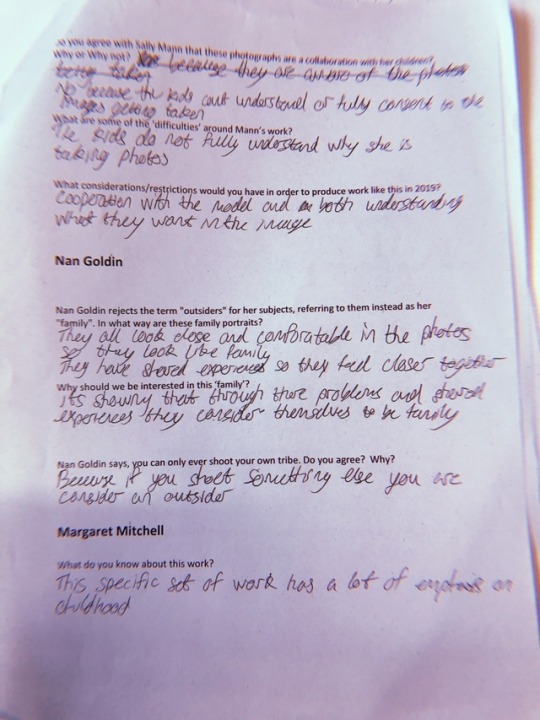 Do you agree with Sally Mann that these photographs are a collaboration with her children?
Why or Why not? because they are aware of the photos
being taken
No because the kids cant understand or fully consent to the
images getting taken
What are some of the 'difficulties' around Mann's work?
The kids do not fully understand why she is
taking photos
What considerations/restrictions would you have in order to produce work like this in 2019?
Cooperation with the model and both understanding
what they want in the image
Nan Goldin
Nan Goldin rejects the term "outsiders" for her subjects, referring to them instead as her
"family". In what way are these family portraits?
They all look close and comforatable in the photos
so they look like family
They have shared experiences so they feel closer together
Why should we be interested in this 'family'?
Its showing that through there problems and shared
experiences they consider themselves to be family
Nan Goldin says, you can only ever shoot your own tribe. Do you agree? Why?
Because if you shoot something else you are
consider an outsider
Margaret Mitchell
What do you know about this work?
This specific set of work has a lot of emphasis on
childhood